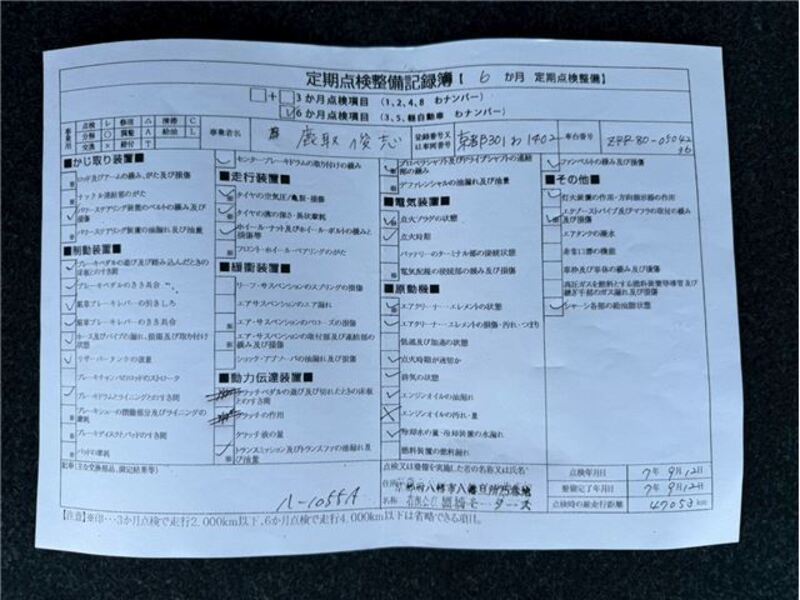 定期点検整備記録簿【 6 か月 定期点検整備】
3か月点検項目 (1、2、4、8 わナンバー)
6か月点検項目 (3、5、軽自動車 わナンバー)
点検 レ 修理 △ 清掃 C
分解 ○ 調整 A 給油 L
交換 × 締付 T
事業者名
登録番号又は車両番号
車台番号
■かじ取り装置■
ロッド及アームの緩み、がた及び損傷
ナックル連結部のがた
パワーステアリング装置のベルトの緩み及び損傷
パワーステアリング装置の油漏れ及び油量
■制動装置■
ブレーキペダルの遊び及び踏み込んだときの床板とのすき間
ブレーキペダルのきき具合
駐車ブレーキレバーの引きしろ
駐車ブレーキレバーのきき具合
ホース及びパイプの漏れ、損傷及び取り付け状態
リザーバータンクの液量
ブレーキチャンバのロッドのストローク
ブレーキドラムとライニングとのすき間
ブレーキシューの摺動部分及びライニングの摩耗
ブレーキディスクとパッドのすき間
パッドの摩耗
センターブレーキドラムの取り付けの緩み
■走行装置■
タイヤの空気圧/亀裂・損傷
タイヤの溝の深さ・異状摩耗
ホイール・ナット及びホイールボルトの緩みと損傷等
フロント・ホイール・ベアリングのがた
■緩衝装置■
リーフ・サスペンションのスプリングの損傷
エア・サスペンションのエア漏れ
エア・サスペンションのベローズの損傷
エア・サスペンションの取付部及び連結部の緩み及び損傷
ショック・アブソーバの油漏れ及び損傷
■動力伝達装置■
クラッチペダルの遊び及び切れたときの床板とのすき間
クラッチの作用
クラッチ液の量
トランスミッション及びトランスファの油漏れ及び油量
プロペラシャフト及びドライブシャフトの連結部の緩み
デファレンシャルの油漏れ及び油量
■電気装置■
点火プラグの状態
点火時期
バッテリーのターミナル部の接続状態
電気配線の接続部の緩み及び損傷
■原動機■
エアクリーナー・エレメントの状態
エアクリーナー・エレメントの損傷・汚れ・つまり
低速及び加速の状態
点火時期が適切か
排気の状態
エンジンオイルの油漏れ
エンジンオイルの汚れ・量
冷却水の量・冷却装置の水漏れ
燃料装置の燃料漏れ
ファンベルトの緩み及び損傷
■その他■
灯火装置の作用・方向指示器の作用
エグゾーストパイプ及びマフラの取付の緩み及び損傷
エアタンクの凝水
非常口扉の機能
車枠及び車体の緩み及び損傷
シャーシ各部の給油脂状態
記事(主な交換部品、測定結果等)
ハ-1055A
点検又は整備を実施した者の名称又は氏名
住所
名称
点検年月日 7年 9月12日
整備完了年月日 7年 9月12日
点検時の総走行距離 47053 km
【注意】※印…3か月点検で走行2,000km以下、6か月点検で走行4,000km以下は省略できる項目。